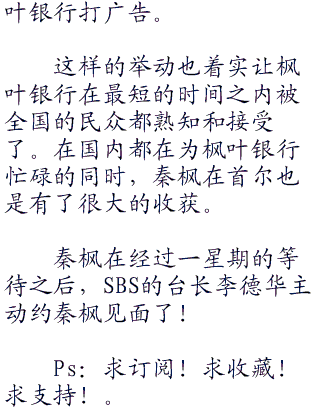 叶银行打广告。
这样的举动也着实让枫
叶银行在最短的时间之内被
全国的民众都熟知和接受
了。在国内都在为枫叶银行
忙碌的同时，秦枫在首尔也
是有了很大的收获。
秦枫在经过一星期的等
待之后，SBS的台长李德华主
动约秦枫见面了！
Ps：求订阅！求收藏！
求支持！。